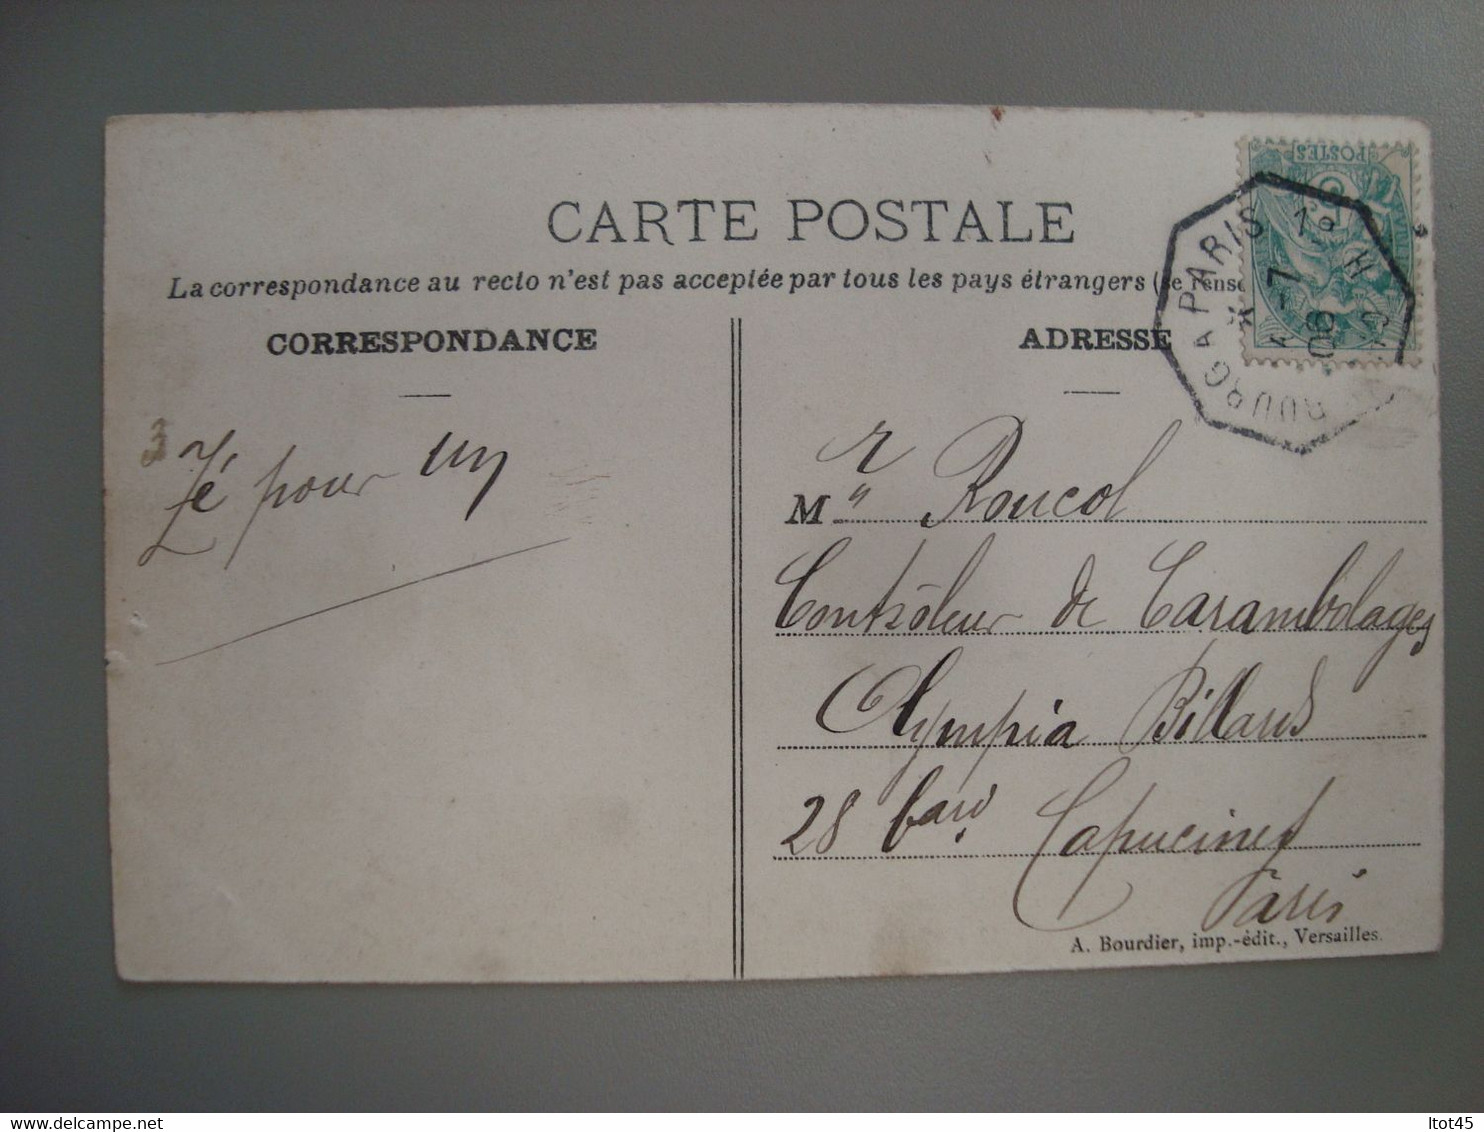 CARTE POSTALE
La correspondance au recto n'est pas acceptée par tous les pays étrangers (se rense
CORRESPONDANCE
ADRESSE
POSTES
PARIS 1º
7
06
3
Zé pour un
M r Roucol
Contrôleur de Carambolages
Olympia Billard
28 Capucines
Paris
A. Bourdier, imp.-édit., Versailles.
ltot45